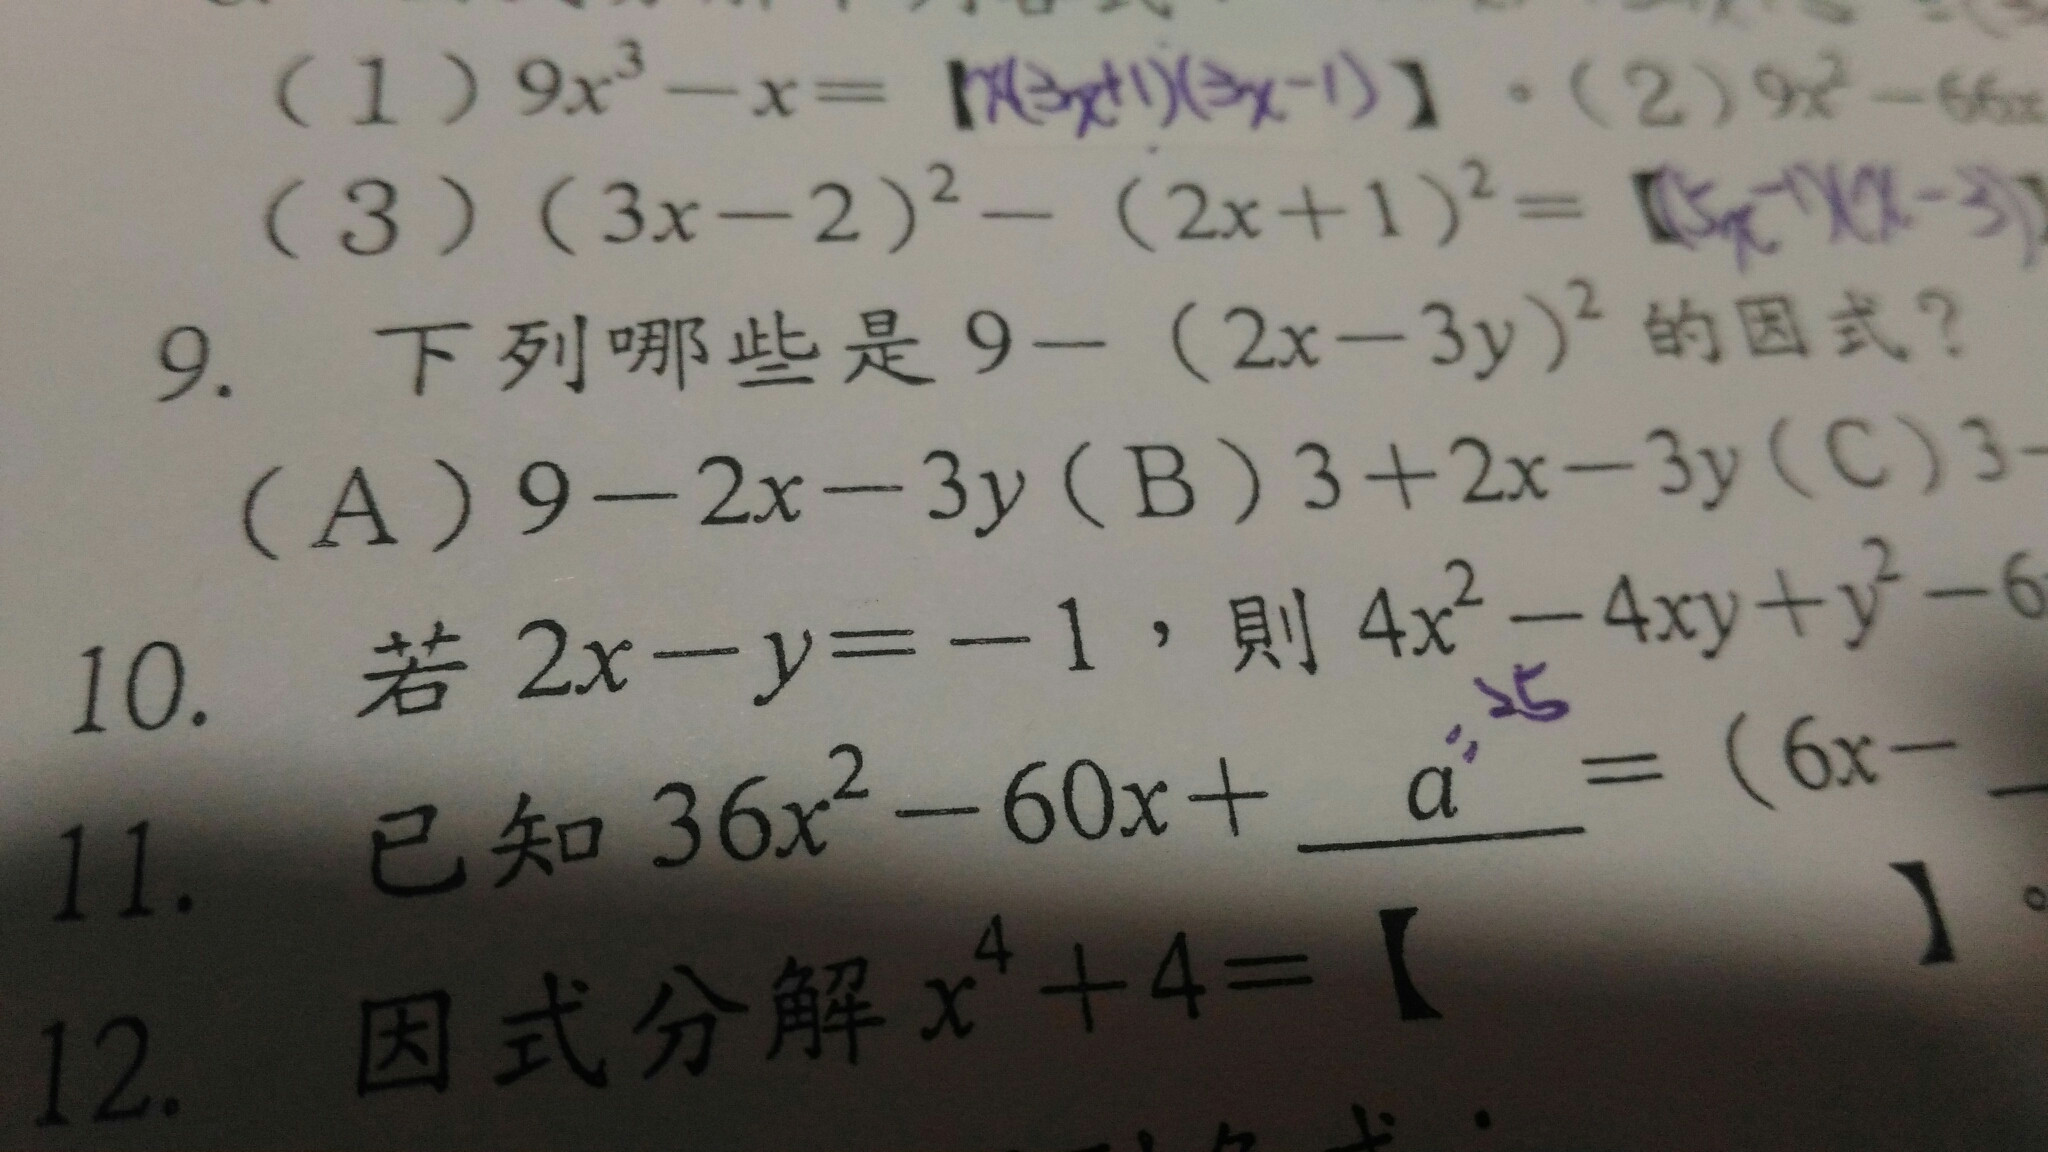 (1) 9x³－x=【x(3x+1)(3x-1)】。(2) 9x²－66x
(3) (3x－2)²－(2x+1)²=【(5x-1)(x-3)】
9. 下列哪些是 9－(2x－3y)² 的因式？
(A) 9－2x－3y (B) 3+2x－3y (C) 3－
10. 若 2x－y=－1，則 4x²－4xy+y²－6
25
11. 已知 36x²－60x+ a =(6x－
12. 因式分解 x⁴+4=【 】。